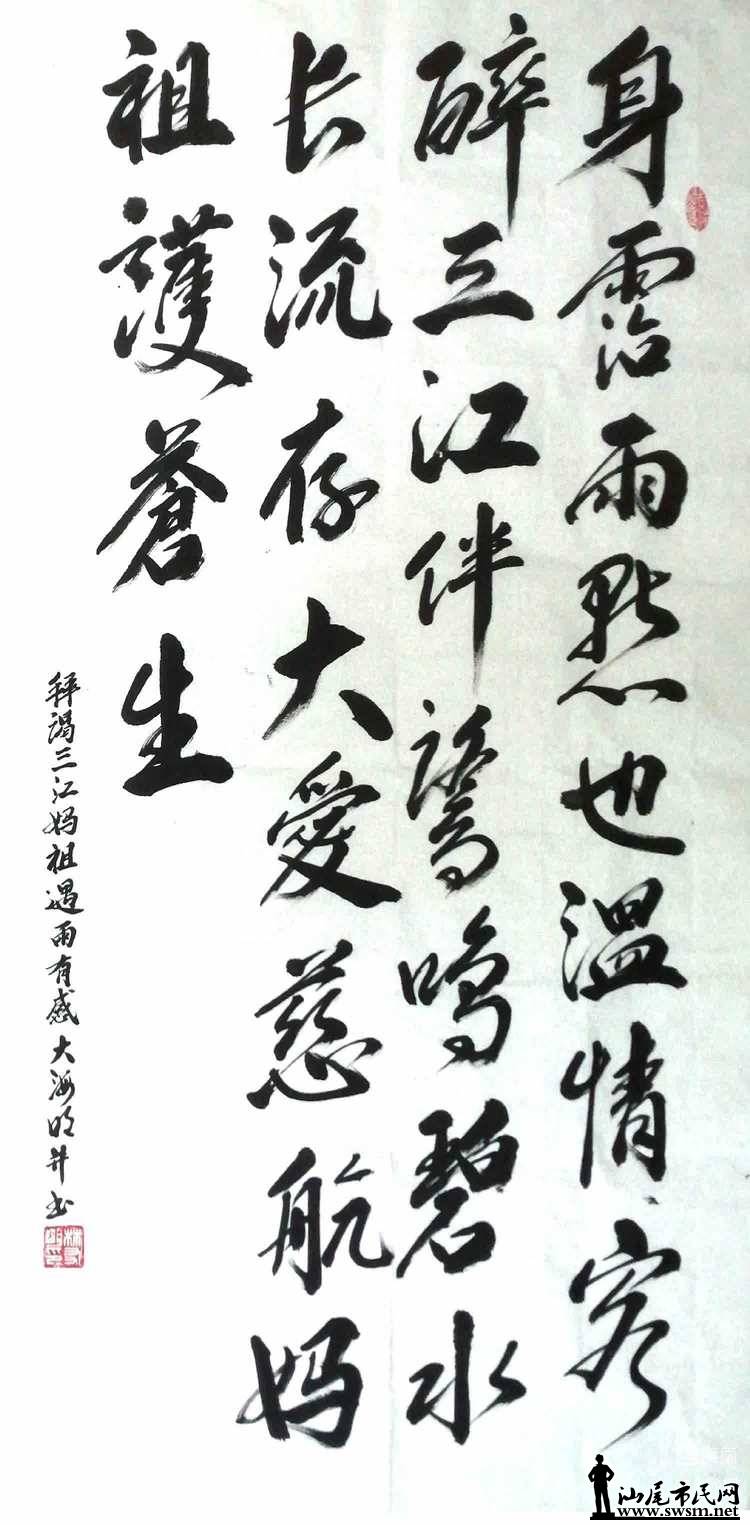 身霑雨點也溫情客
醉三江伴鷺鳴碧水
长流存大愛慈航妈
祖護蒼生
拜謁三江妈祖遇雨有感大海明井书
汕尾市民网
www.swsm.net